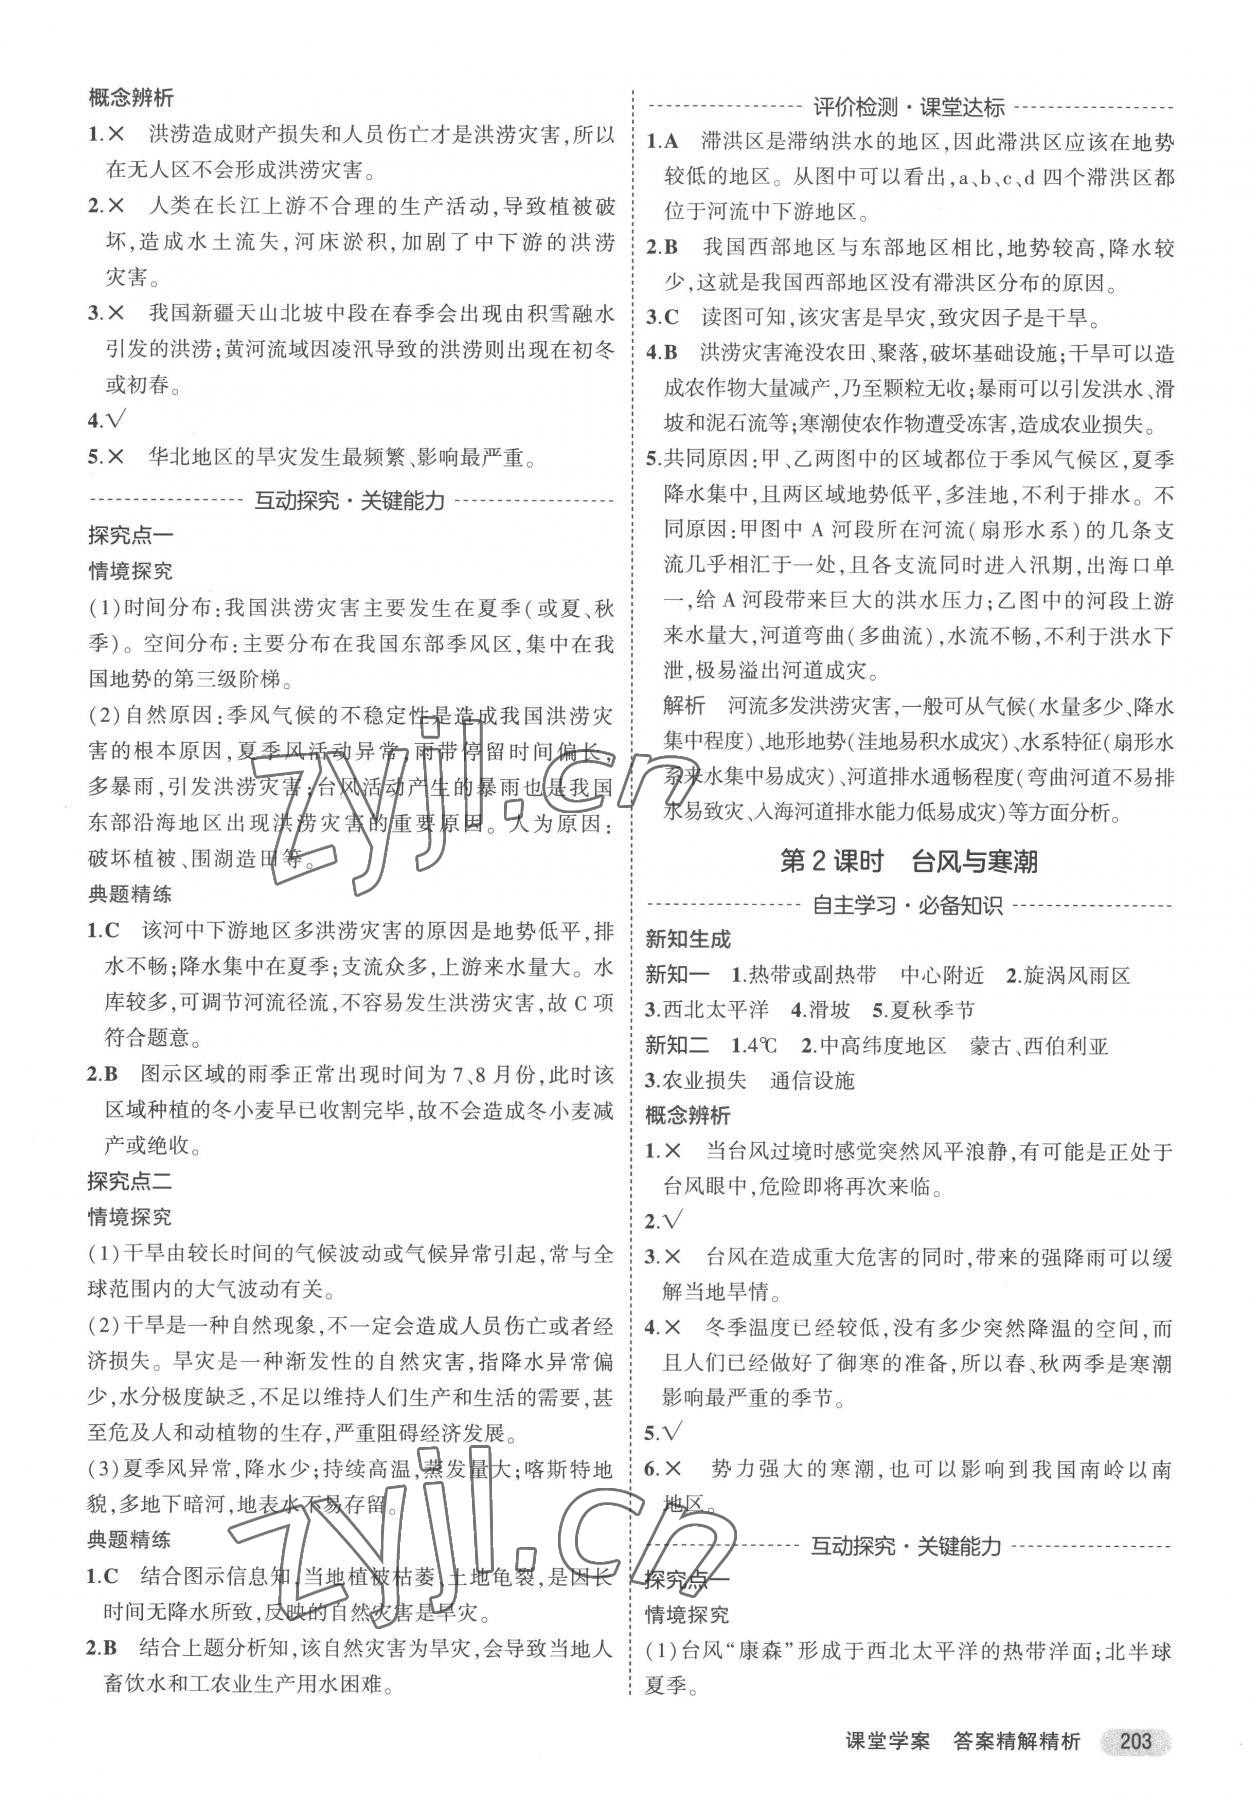 概念辨析
1.× 洪涝造成财产损失和人员伤亡才是洪涝灾害,所以
在无人区不会形成洪涝灾害。
2.× 人类在长江上游不合理的生产活动,导致植被破
坏,造成水土流失,河床淤积,加剧了中下游的洪涝
灾害。
3.× 我国新疆天山北坡中段在春季会出现由积雪融水
引发的洪涝;黄河流域因凌汛导致的洪涝则出现在初冬
或初春。
4.√
5.× 华北地区的旱灾发生最频繁、影响最严重。
互动探究·关键能力
探究点一
情境探究
(1)时间分布:我国洪涝灾害主要发生在夏季(或夏、秋
季)。空间分布:主要分布在我国东部季风区,集中在我
国地势的第三级阶梯。
(2)自然原因:季风气候的不稳定性是造成我国洪涝灾
害的根本原因,夏季风活动异常,雨带停留时间偏长、
多暴雨,引发洪涝灾害;台风活动产生的暴雨也是我国
东部沿海地区出现洪涝灾害的重要原因。人为原因:
破坏植被、围湖造田等。
典题精练
1.C 该河中下游地区多洪涝灾害的原因是地势低平,排
水不畅;降水集中在夏季;支流众多,上游来水量大。水
库较多,可调节河流径流,不容易发生洪涝灾害,故C项
符合题意。
2.B 图示区域的雨季正常出现时间为7、8月份,此时该
区域种植的冬小麦早已收割完毕,故不会造成冬小麦减
产或绝收。
探究点二
情境探究
(1)干旱由较长时间的气候波动或气候异常引起,常与全
球范围内的大气波动有关。
(2)干旱是一种自然现象,不一定会造成人员伤亡或者经
济损失。旱灾是一种渐发性的自然灾害,指降水异常偏
少,水分极度缺乏,不足以维持人们生产和生活的需要,甚
至危及人和动植物的生存,严重阻碍经济发展。
(3)夏季风异常,降水少;持续高温,蒸发量大;喀斯特地
貌,多地下暗河,地表水不易存留。
典题精练
1.C 结合图示信息知,当地植被枯萎、土地龟裂,是因长
时间无降水所致,反映的自然灾害是旱灾。
2.B 结合上题分析知,该自然灾害为旱灾,会导致当地人
畜饮水和工农业生产用水困难。
评价检测·课堂达标
1.A 滞洪区是滞纳洪水的地区,因此滞洪区应该在地势
较低的地区。从图中可以看出,a、b、c、d四个滞洪区都
位于河流中下游地区。
2.B 我国西部地区与东部地区相比,地势较高,降水较
少,这就是我国西部地区没有滞洪区分布的原因。
3.C 读图可知,该灾害是旱灾,致灾因子是干旱。
4.B 洪涝灾害淹没农田、聚落,破坏基础设施;干旱可以造
成农作物大量减产,乃至颗粒无收;暴雨可以引发洪水、滑
坡和泥石流等;寒潮使农作物遭受冻害,造成农业损失。
5.共同原因:甲、乙两图中的区域都位于季风气候区,夏季
降水集中,且两区域地势低平,多洼地,不利于排水。不
同原因:甲图中A河段所在河流(扇形水系)的几条支
流几乎相汇于一处,且各支流同时进入汛期,出海口单
一,给A河段带来巨大的洪水压力;乙图中的河段上游
来水量大,河道弯曲(多曲流),水流不畅,不利于洪水下
泄,极易溢出河道成灾。
解析 河流多发洪涝灾害,一般可从气候(水量多少、降水
集中程度)、地形地势(洼地易积水成灾)、水系特征(扇形水
系来水集中易成灾)、河道排水通畅程度(弯曲河道不易排
水易致灾、入海河道排水能力低易成灾)等方面分析。
第2课时 台风与寒潮
自主学习·必备知识
新知生成
新知一 1.热带或副热带 中心附近 2.旋涡风雨区
3.西北太平洋 4.滑坡 5.夏秋季节
新知二 1.4℃ 2.中高纬度地区 蒙古、西伯利亚
3.农业损失 通信设施
概念辨析
1.× 当台风过境时感觉突然风平浪静,有可能是正处于
台风眼中,危险即将再次来临。
2.√
3.× 台风在造成重大危害的同时,带来的强降雨可以缓
解当地旱情。
4.× 冬季温度已经较低,没有多少突然降温的空间,而
且人们已经做好了御寒的准备,所以春、秋两季是寒潮
影响最严重的季节。
5.√
6.× 势力强大的寒潮,也可以影响到我国南岭以南
地区。
互动探究·关键能力
探究点一
情境探究
(1)台风“康森”形成于西北太平洋的热带洋面;北半球
夏季。
课堂学案 答案精解精析 203
zyjl.cn
zyjl.cn